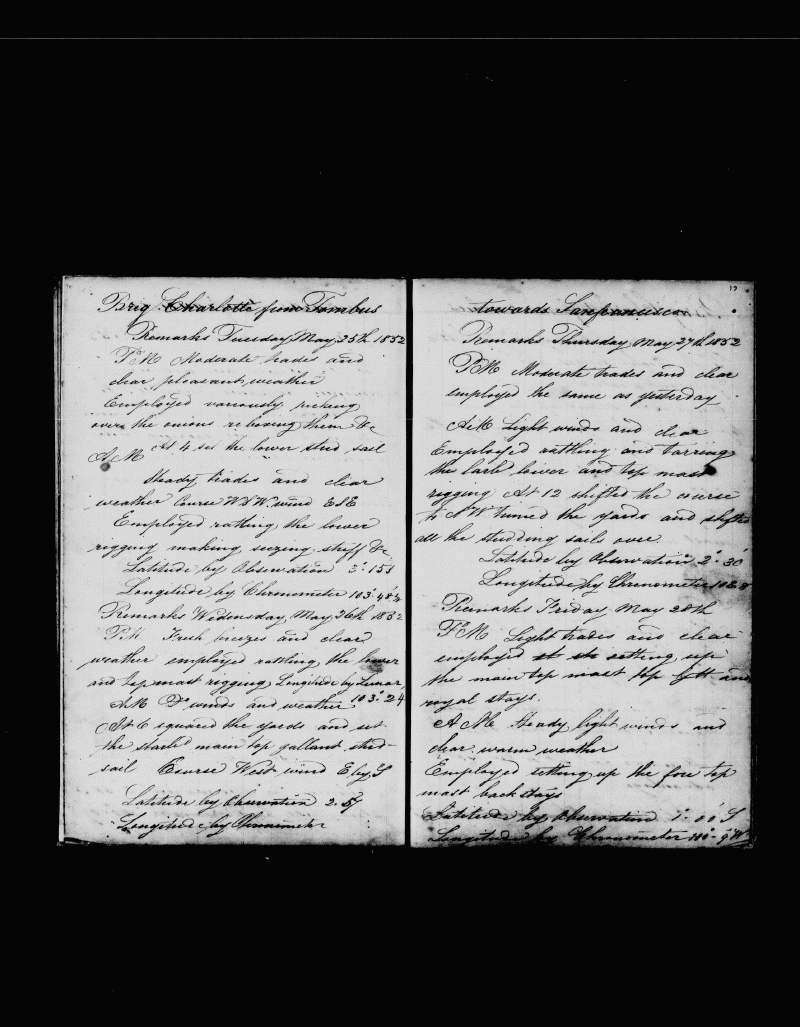 Brig Charlotte from Tombus
Remarks Tuesday May 25th 1852
P.M Moderate trades and
clear pleasant weather
Employed variously picking
over the onions reboxing them &c
A M At 4 set the lower stud sail
Steady trades and clear
weather Course WNW wind ESE
Employed ratling the lower
rigging making seezing stuff &c
Latitude by Observation 3° 15 S
Longitude by Chronometer 103° 48
Remarks Wedensday May 26th 1852
P.M Fresh breezes and clear
weather employed rattling the lower
and top mast rigging Longitude by Lunar
AM Do winds and weather 103° 24
At 6 squared the yards and set
the starbd main top gallant stud-
sail Course West wind E by S
Latitude by Observation 2. 57
Longitude by Chronometer
17
towards Sanfrancisco
Remarks Thursday May 27th 1852
PM Moderate trades and clear
employed the same as yesterday
AM Light winds and clear
Employed rattling and tarring
the larb lower and top mast
rigging At 12 shifted the course
to NW trimed the yards and shifted
all the studding sails over
Latitude by Observation 2° 30'
Longitude by Chronometer 108
Remarks Friday May 28th
PM Light trades and clear
employed setting up
the main top mast top gltt and
royal stays.
A M Steady light winds and
clear warm weather
Employed setting up the fore top
mast back stays
Latitude by Observation 1° 00' S
Longitude by Chronometer 110° 9' W